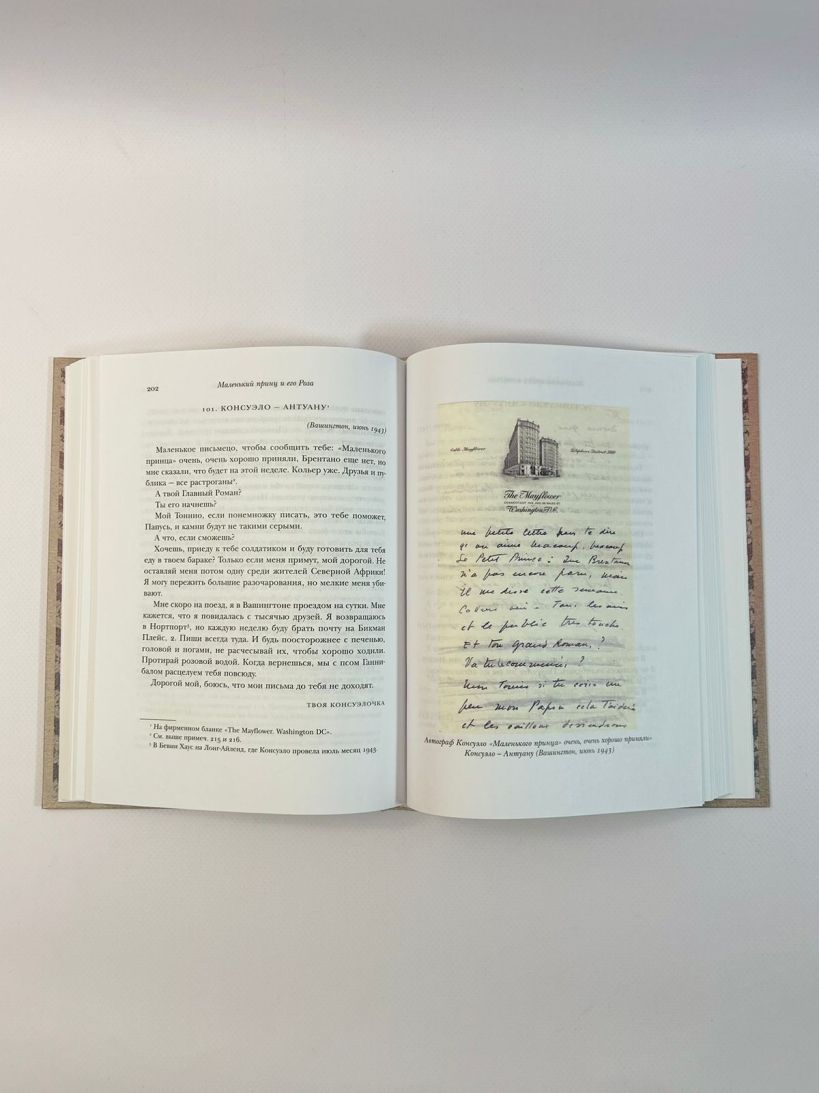 202
Маленький принц и его Роза
101. КОНСУЭЛО – АНТУАНУ¹
(Вашингтон, июнь 1943)
Маленькое письмецо, чтобы сообщить тебе: «Маленького
принца» очень, очень хорошо приняли. Брентано еще нет, но
мне сказали, что будет на этой неделе. Кольер уже. Друзья и пу-
блика – все растроганы².
А твой Главный Роман?
Ты его начнешь?
Мой Тоннио, если понемножку писать, это тебе поможет,
Папусь, и камни будут не такими серыми.
А что, если сможешь?
Хочешь, приеду к тебе солдатиком и буду готовить для тебя
еду в твоем бараке? Только если меня примут, мой дорогой. Не
оставляй меня потом одну среди жителей Северной Африки!
Я могу пережить большие разочарования, но мелкие меня уби-
вают.
Мне скоро на поезд, я в Вашингтоне проездом на сутки. Мне
кажется, что я повидалась с тысячью друзей. Я возвращаюсь
в Нортпорт³, но каждую неделю буду брать почту на Бикман
Плейс, 2. Пиши всегда туда. И будь поосторожнее с печенью,
головой и ногами, не расчесывай их, чтобы хорошо ходили.
Протирай розовой водой. Когда вернешься, мы с псом Ганни-
балом расцелуем тебя повсюду.
Дорогой мой, боюсь, что мои письма до тебя не доходят.
ТВОЯ КОНСУЭЛОЧКА
¹ На фирменном бланке «The Mayflower. Washington DC».
² См. выше примеч. 215 и 216.
³ В Бевин Хаус на Лонг-Айленд, где Консуэло провела июль месяц 1943.
Cable Mayflower
The Mayflower
Washington D.C.
une petite lettre pour te dire
qu'on aime beaucoup, beaucoup
Le Petit Prince: Que Brestano
n'a pas encore paru, mais
il me disse cette semaine
et le public tres touché
Et ton grand Roman?
Va tu commencer?
mon Tonio si tu ecris un
peu mon Papou cela t'aidera
et les cailloux
Автограф Консуэло «Маленького принца» очень, очень хорошо приняли»
Консуэло – Антуану (Вашингтон, июнь 1943)